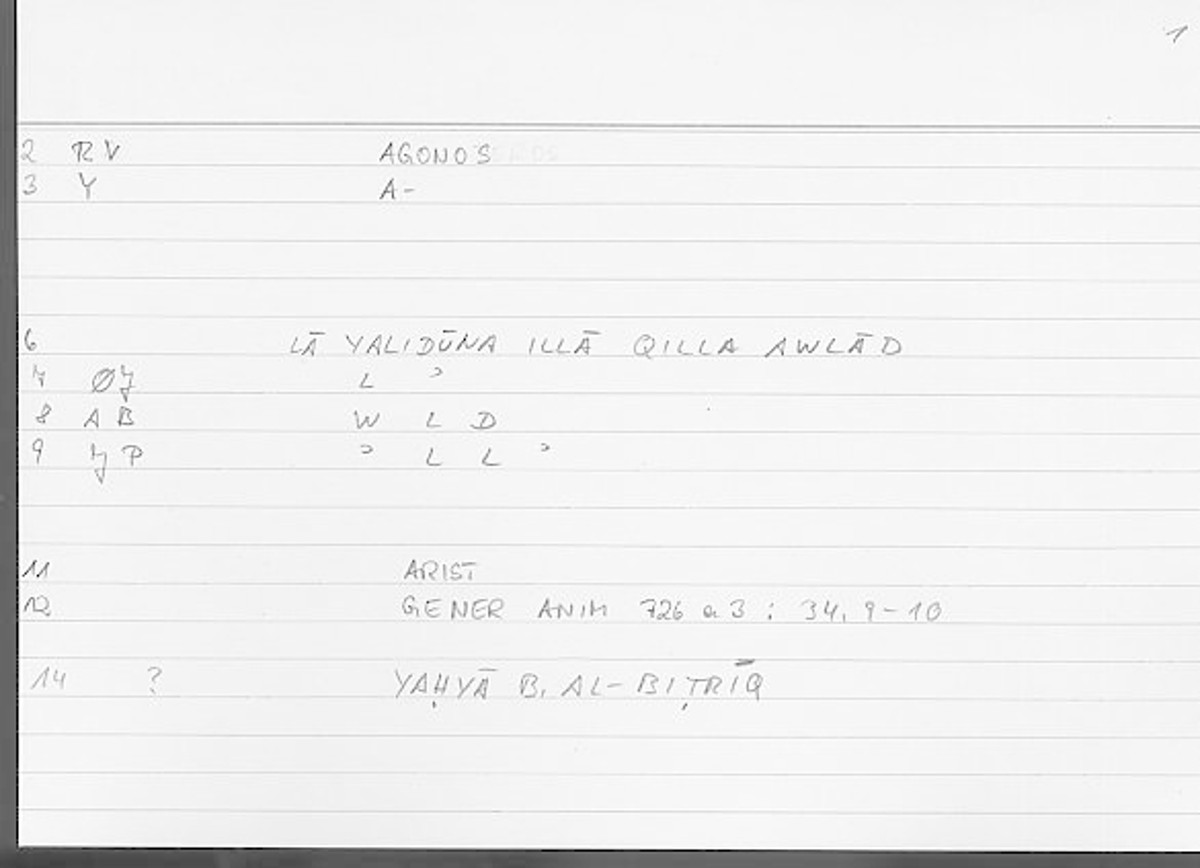 1
2 RV AGONOS
3 Y A-
6 LĀ YALIDŪNA ILLĀ QILLA AWLĀD
7 ØJ L ɔ
8 AB W L D
9 JP ɔ L L ɔ
11 ARIST
12 GENER ANIM 726 a 3 : 34, 9-10
14 ? YAḤYĀ B. AL-BIṬRĪQ